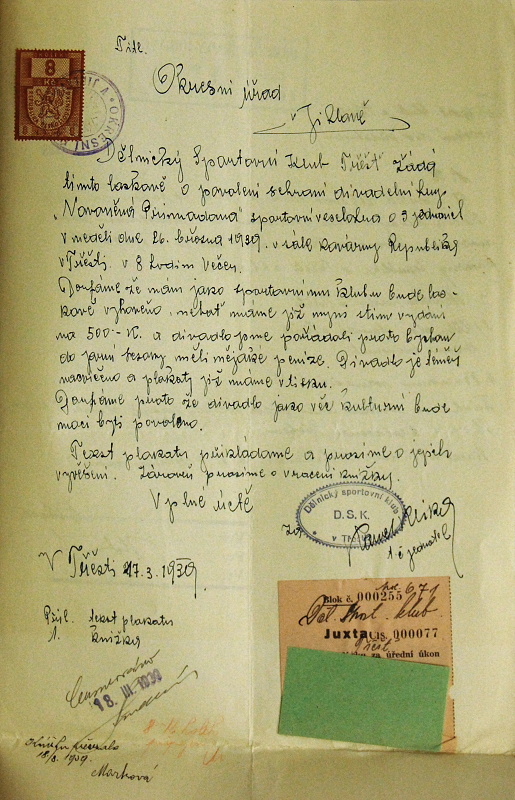 Titl.
Okresní úřad
v Jihlavě
8
Kč
OKRESNÍ
Dělnický Sportovní Klub Třešť žádá
tímto laskavě o povolení sehraní divadelní hry
"Navaněná Primadona" sportovní veselohra o 3 jednání
v neděli dne 26. března 1939. v sále kavárny Republika
v Třešti. v 8 hodin Večer.
Doufáme že nám jako sportovnímu klubu bude las-
kavě vyhověno, neboť máme již nyní s tím vydání
na 500.- K. a divadlo jsme pořádali proto bychom
do jarní sezony měli nějaké peníze. Divadlo je téměř
nacvičeno a plakáty již máme v tisku.
Doufáme proto že divadlo jako věc kulturní bude
moci býti povoleno.
Text plakátu přikládáme a prosíme o jejich
vyvěšení. Zároveň prosíme o vracení knížky.
V plné úctě
Dělnický sportovní klub
D.S.K.
v Třešti
za
Pavel
jednatel
V Třešti 17.3.1939.
Příl. text plakátu
1. knížka
18. III. 1939
18/3. 1939.
Marková
Blok č. 000255
671
Děl. Sport. klub
Juxta Čís. 000077
Třešť
za úřední úkon